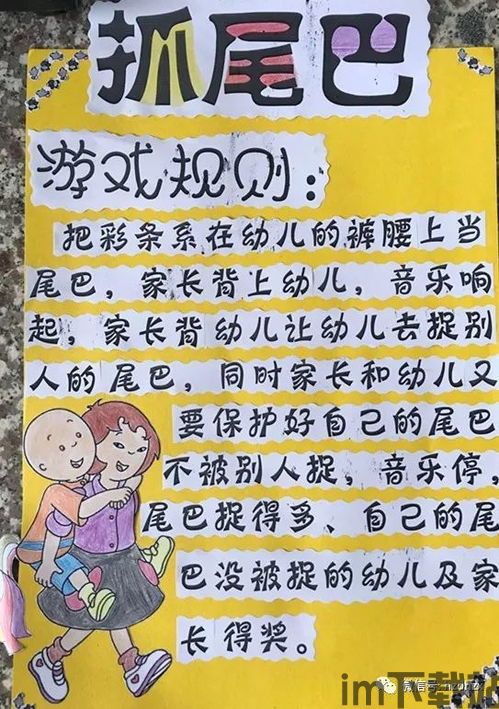 抓尾巴
游戏规则：
把彩条系在幼儿的裤腰上当
尾巴，家长背上幼儿，音乐响
起，家长背幼儿让幼儿去捉别
人的尾巴，同时家长和幼儿又
要保护好自己的尾巴
不被别人捉，音乐停，
尾巴捉得多、自己的尾
巴没被捉的幼儿及家
长得奖。
微信号
im下载站